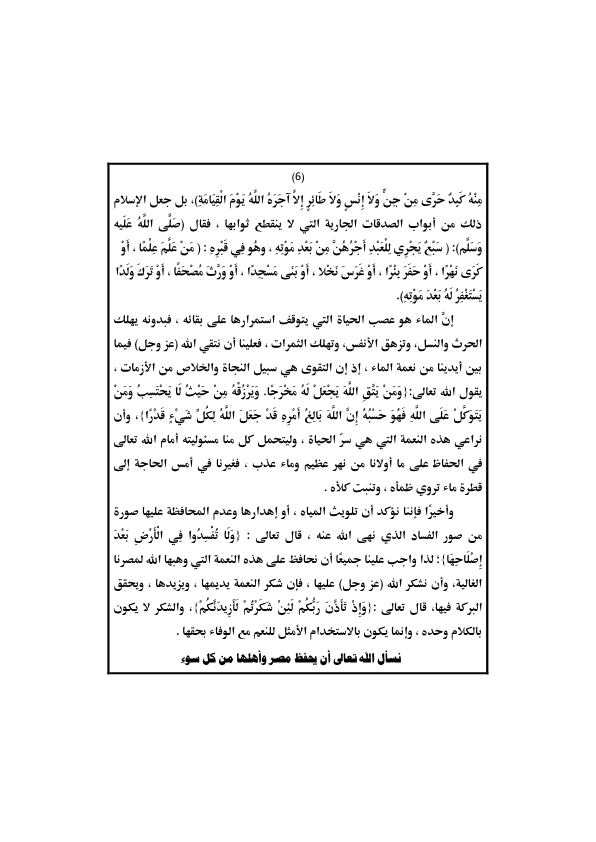 (6)
مِنْهُ كَبِدٌ حَرَّى مِنْ جِنٍّ وَلاَ إِنْسٍ وَلاَ طَائِرٍ إِلاَّ آجَرَهُ اللَّهُ يَوْمَ الْقِيَامَةِ)، بل جعل الإسلام
ذلك من أبواب الصدقات الجارية التي لا ينقطع ثوابها ، فقال (صَلَّى اللَّهُ عَلَيه
وَسَلَّم): ( سَبْعٌ يَجْرِي لِلْعَبْدِ أَجْرُهُنَّ مِنْ بَعْدِ مَوْتِهِ ، وهُو فِي قَبْرِهِ : ( مَنْ عَلَّمَ عِلْمًا ، أَوْ
كَرَى نَهْرًا ، أَوْ حَفَرَ بِئْرًا ، أَوْ غَرَسَ نَخْلا ، أَوْ بَنَى مَسْجِدًا ، أَوْ وَرَّثَ مُصْحَفًا ، أَوْ تَرَكَ وَلَدًا
يَسْتَغْفِرُ لَهُ بَعْدَ مَوْتِهِ).
إنَّ الماء هو عصب الحياة التي يتوقف استمرارها على بقائه ، فبدونه يهلك
الحرث والنسل، وتزهق الأنفس، وتهلك الثمرات ، فعلينا أن نتقي الله (عز وجل) فيما
بين أيدينا من نعمة الماء ، إذ إن التقوى هي سبيل النجاة والخلاص من الأزمات ،
يقول الله تعالى:{وَمَنْ يَتَّقِ اللَّهَ يَجْعَلْ لَهُ مَخْرَجًا. وَيَرْزُقْهُ مِنْ حَيْثُ لَا يَحْتَسِبُ وَمَنْ
يَتَوَكَّلْ عَلَى اللَّهِ فَهُوَ حَسْبُهُ إِنَّ اللَّهَ بَالِغُ أَمْرِهِ قَدْ جَعَلَ اللَّهُ لِكُلِّ شَيْءٍ قَدْرًا}، وأن
نراعي هذه النعمة التي هي سرّ الحياة ، وليتحمل كل منا مسئوليته أمام الله تعالى
في الحفاظ على ما أولانا من نهر عظيم وماء عذب ، فغيرنا في أمس الحاجة إلى
قطرة ماء تروي ظمأه ، وتنبت كلأه .
وأخيرًا فإننا نؤكد أن تلويث المياه ، أو إهدارها وعدم المحافظة عليها صورة
من صور الفساد الذي نهى الله عنه ، قال تعالى : {وَلَا تُفْسِدُوا فِي الْأَرْضِ بَعْدَ
إِصْلَاحِهَا}؛ لذا واجب علينا جميعًا أن نحافظ على هذه النعمة التي وهبها الله لمصرنا
الغالية، وأن نشكر الله (عز وجل) عليها ، فإن شكر النعمة يديمها ، ويزيدها ، ويحقق
البركة فيها، قال تعالى :{وَإِذْ تَأَذَّنَ رَبُّكُمْ لَئِنْ شَكَرْتُمْ لَأَزِيدَنَّكُمْ}، والشكر لا يكون
بالكلام وحده ، وإنما يكون بالاستخدام الأمثل للنعم مع الوفاء بحقها .
نسأل الله تعالى أن يحفظ مصر وأهلها من كل سوء